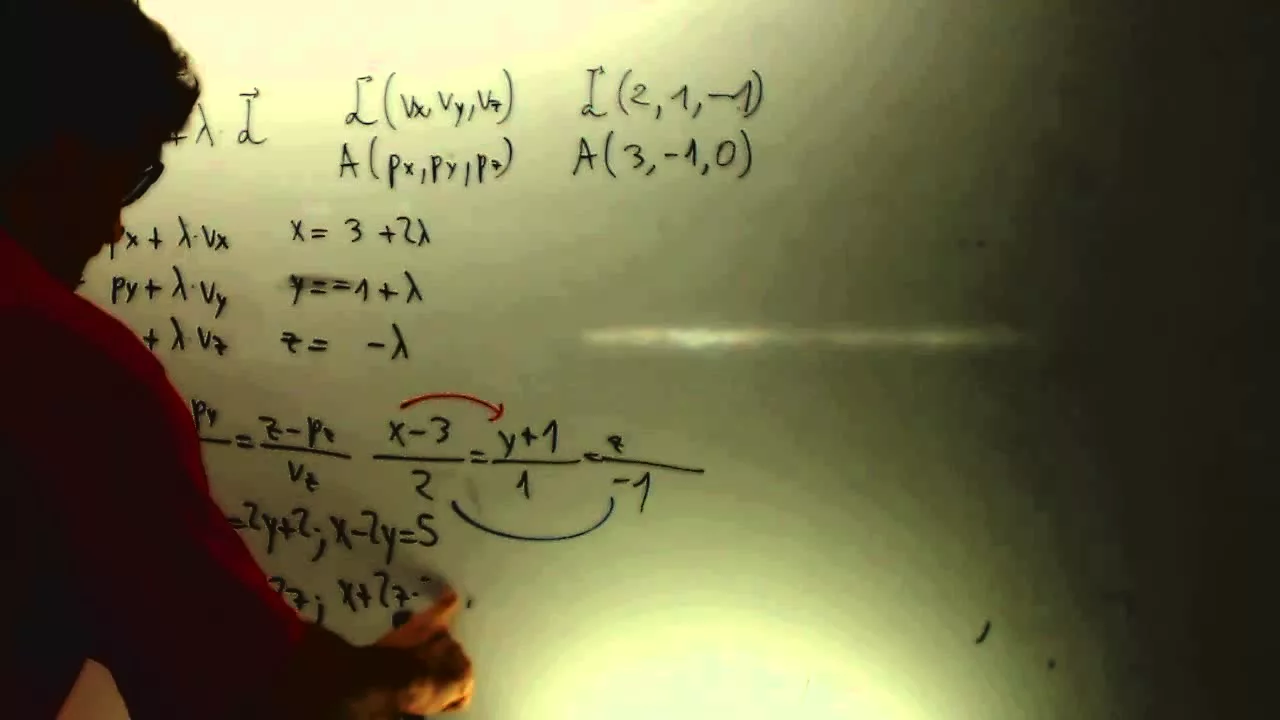 + λ · d⃗ d⃗ (vx, vy, vz) d⃗ (2, 1, -1)
A (px, py, pz) A (3, -1, 0)
px + λ · vx x = 3 + 2λ
py + λ · vy y = -1 + λ
+ λ vz z = -λ
py = z - pz / vz x - 3 / 2 = y + 1 / 1 = z / -1
= 2y + 2; x - 2y = 5
2z; x + 2z